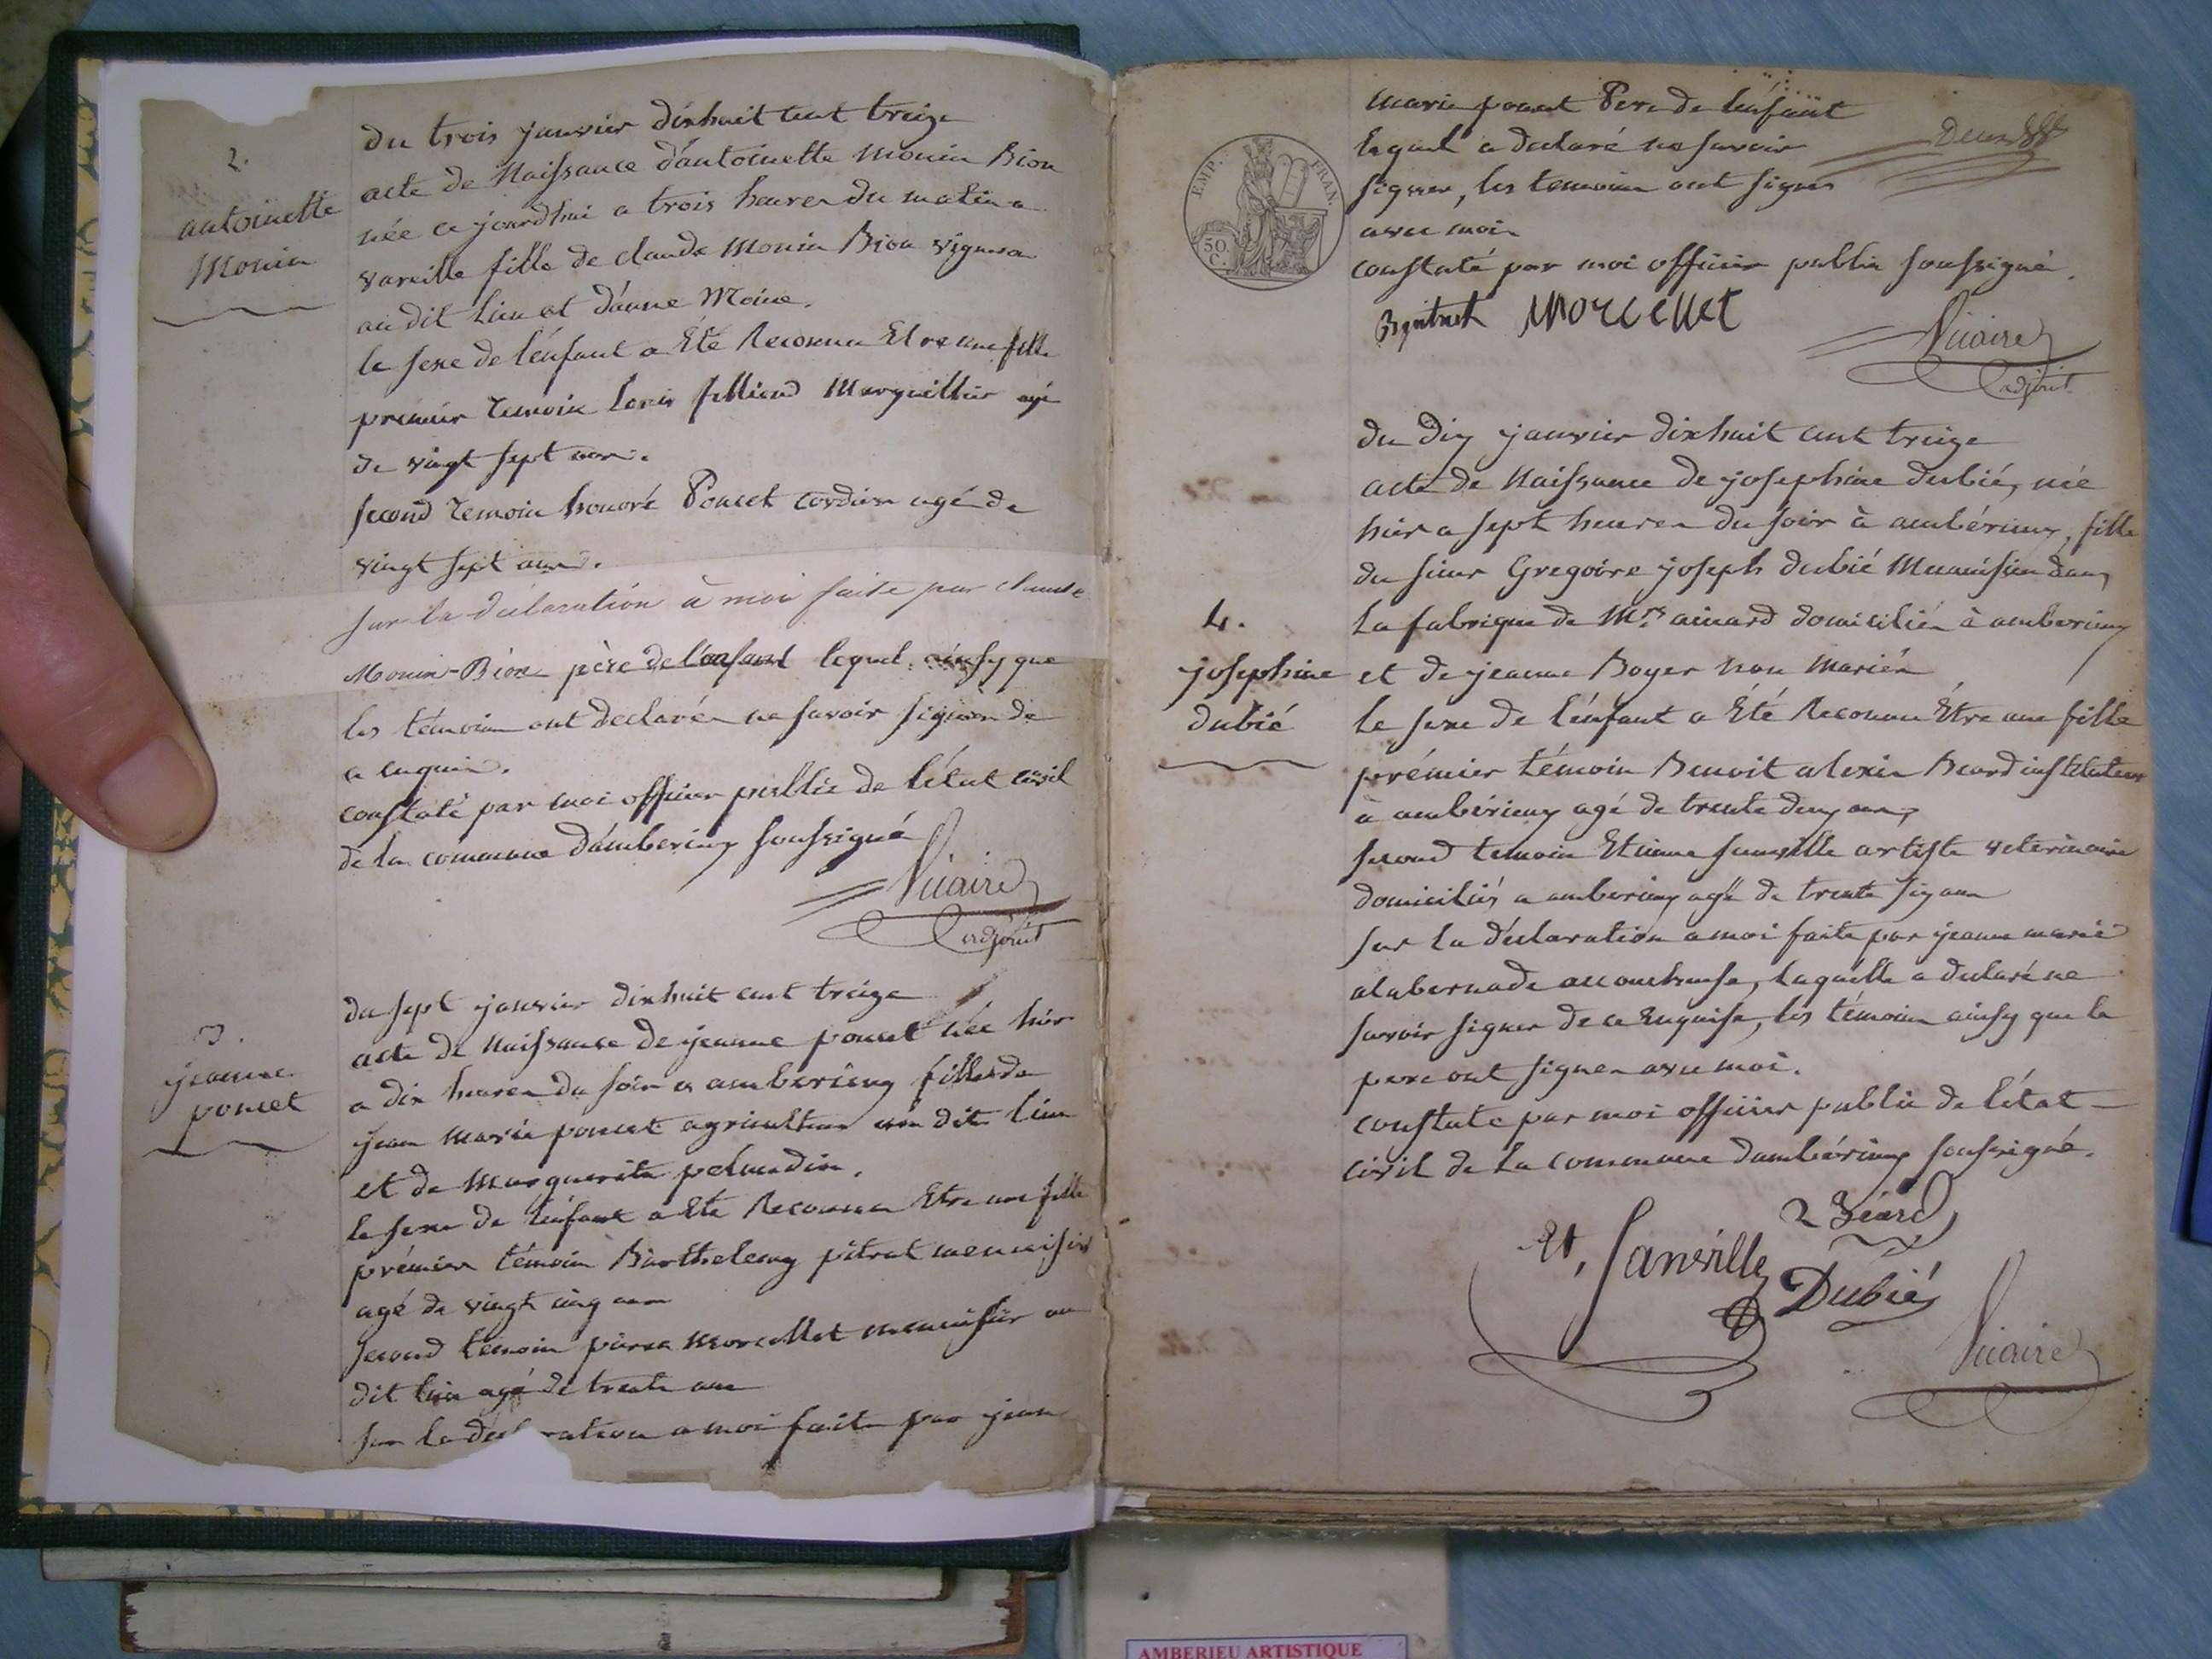 2.
antoinette
Monin
du trois janvier dixhuit cent treize
acte de Naissance d'antoinette Monin Bion
née ce jourdhui a trois heures du matin a
vareille fille de claude Monin Bion vigneron
au dit lieu et d'anne Moine.
le sexe de l'énfant a Eté Reconnu Etre une fille
premier Temoin Louis filliond Marguillier agé
de vingt sept ans.
second Temoin honoré Poncet cordier agé de
vingt sept ans.
sur la declaration à moi faite par claude
Monin-Bion père de l'enfant lequel ainsy que
les témoins ont declarés ne savoir signer de
ce enquis.
constaté par moi officier public de l'état civil
de la commune d'amberieux soussigné
Vicaire
adjoint
3.
jeanne
poncet
du sept janvier dixhuit cent treize
acte de Naissance de jeanne poncet née hier
a dix heures du soir a amberieux fille de
jean marie poncet agriculteur au dit lieu
et de Marguerite
le sexe de l'énfant a Eté Reconnu Etre une fille
prémier témoin Barthelemy pitrat menuisier
agé de vingt cinq ans
second témoin pierre morcellet menuisier au
dit lieu agé de trente ans
sur la declaration a moi faite par jean
EMP. FRAN.
50
C.
marie poncet Pere de l'énfant
lequel a declaré ne savoir
signer, les temoins ont signés
avec moi
constaté par moi officier public soussigné.
Bpitrat Morcellet
Vicaire
adjoint
4.
josephine
dubié
du dix janvier dixhuit cent treize
acte de Naissance de josephine dubié, née
hier a sept heures du soir à ambérieux, fille
du sieur Gregoire joseph dubié Menuisier dans
la fabrique de Mrs ainard domicilié à amberieux
et de jeanne Boyer non Mariés
le sexe de l'énfant a Eté Reconnu Être une fille
prémier témoin Benoit alexis Beard instituteur
à ambérieux agé de trente deux ans,
second temoin Etienne sanville artiste veterinaire
domiciliés a amberieux agé de trente six ans
sur la déclaration a moi faite par jeanne marie
alabernade accoucheuse, laquelle a declaré ne
savoir signer de ce Enquise, les témoins ainsy que le
pere ont signer avec moi.
constate par moi officier public de l'état
civil de la commune d'ambérieux soussigné.
Béard
Et, Sanville
Dubié
Vicaire
AMBERIEU ARTISTIQUE